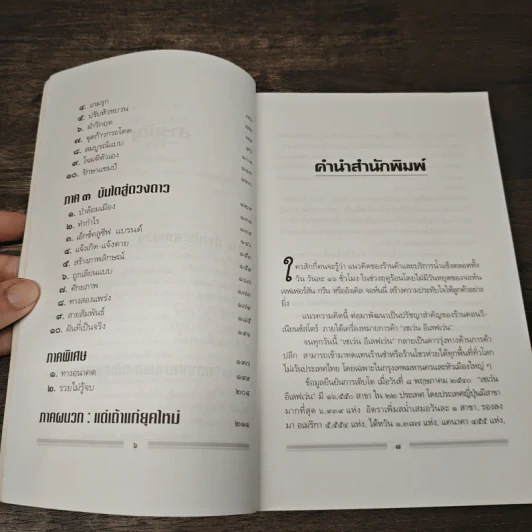 ๔. เกมรุก
๕. ปรับหัวขบวน
๖. ฝ่าวิกฤต
๗. จุดก้าวกระโดด
๘. สมบูรณ์แบบ
๙. โจมตีตัวเอง
๑๐. รักษาแชมป์
ภาค ๓ บันไดสู่ดวงดาว
๑. ป่าล้อมเมือง
๒. ทำกำไร
๓. เอ๊กซ์คลูซีฟ แบรนด์
๔. แจ้งเกิด-แจ้งตาย
๕. สร้างภาพลักษณ์
๖. ถูกเลียนแบบ
๗. ศักยภาพ
๘. ทางสองแพร่ง
๙. สายสัมพันธ์
๑๐. ฝันที่เป็นจริง
ภาคพิเศษ ๑๙๗
๑. ทางอนาคต ๑๙๙
๒. รวยไม่รู้จบ ๒๐๔
ภาคผนวก : แด่เถ้าแก่ยุคใหม่ ๒๑๑
๖
คำนำสำนักพิมพ์
ใครสักกี่คนจะรู้ว่า แนวคิดของร้านค้าและบริการน้ำแข็งตลอดทั้ง
วัน วันละ ๑๖ ชั่วโมง ในช่วงฤดูร้อนโดยไม่มีวันหยุดของจอห์น
เจฟเฟอร์สัน กรีน หรืออังเคิล จอห์นนี่ สร้างความประทับใจให้ลูกค้าอย่าง
ยิ่ง
แนวความคิดนี้ ต่อมาพัฒนาเป็นปรัชญาสำคัญของร้านคอนวี-
เนียนซ์สโตร์ ภายใต้เครื่องหมายการค้า "เซเว่น อีเลฟเว่น"
จนทุกวันนี้ "เซเว่น อีเลฟเว่น" กลายเป็นดาวรุ่งทางด้านการค้า
ปลีก สามารถเข้ามาทดแทนร้านชำหรือร้านโชวห่วยได้ทุกพื้นที่ทั่วโลก
ไม่เว้นประเทศไทย โดยเฉพาะในกรุงเทพมหานครและหัวเมืองใหญ่ ๆ
ข้อมูลยืนยันการเติบโต เมื่อวันที่ ๘ พฤษภาคม ๒๕๔๐ "เซเว่น
อีเลฟเว่น" มี ๑๖,๕๕๐ สาขา ใน ๒๒ ประเทศ โดยประเทศญี่ปุ่นมีสาขา
มากที่สุด ๖,๙๓๔ แห่ง อัตราเพิ่มสม่ำเสมอวันละ ๑ สาขา, รองลง
มา อเมริกา ๕,๕๕๔ แห่ง, ไต้หวัน ๑,๓๘๗ แห่ง, แคนาดา ๔๕๕ แห่ง,
๗